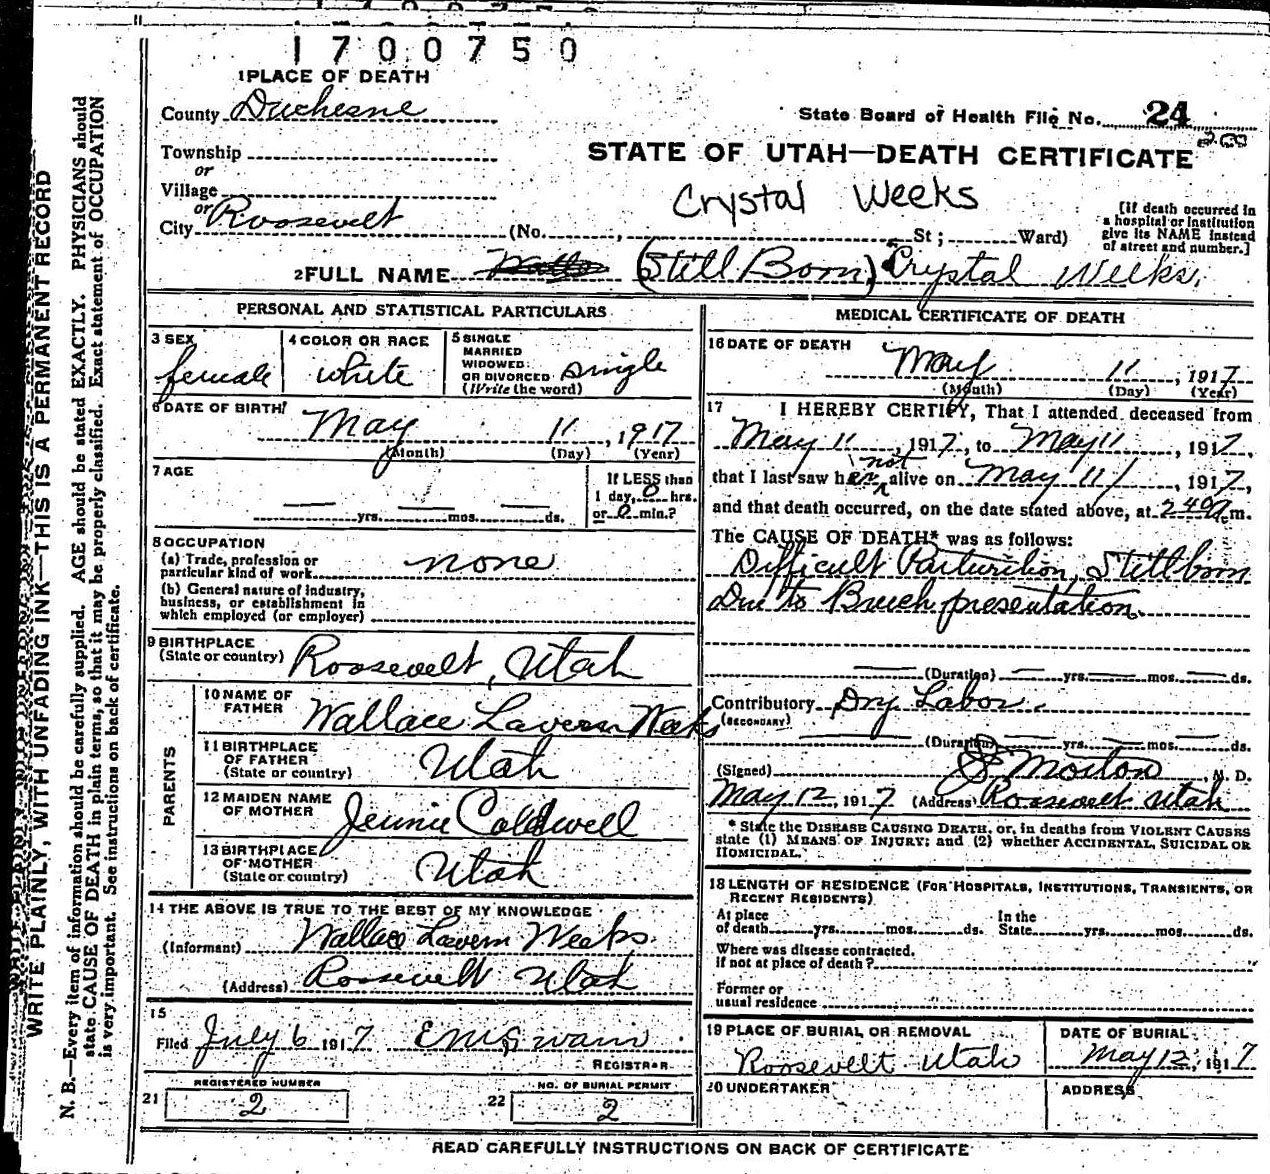 1700750
1 PLACE OF DEATH
County Duchesne
State Board of Health File No. 24
Township
or
Village
or
City Roosevelt (No. , St; Ward)
STATE OF UTAH—DEATH CERTIFICATE
Crystal Weeks
[if death occurred in
a hospital or institution
give its NAME instead
of street and number.]
2 FULL NAME (Still Born) Crystal Weeks.
PERSONAL AND STATISTICAL PARTICULARS
3 SEX
female
4 COLOR OR RACE
white
5 SINGLE
MARRIED
WIDOWED
OR DIVORCED
(Write the word)
single
6 DATE OF BIRTH
May 11, 1917
(Month) (Day) (Year)
7 AGE
yrs. mos. ds.
If LESS than
1 day, 0 hrs.
or 0 min.?
8 OCCUPATION
(a) Trade, profession or
particular kind of work none
(b) General nature of industry,
business, or establishment in
which employed (or employer)
9 BIRTHPLACE
(State or country) Roosevelt, Utah
PARENTS
10 NAME OF
FATHER Wallace Lavern Weeks
11 BIRTHPLACE
OF FATHER
(State or country) Utah
12 MAIDEN NAME
OF MOTHER Jennie Coldwell
13 BIRTHPLACE
OF MOTHER
(State or country) Utah
14 THE ABOVE IS TRUE TO THE BEST OF MY KNOWLEDGE
(Informant) Wallace Lavern Weeks.
(Address) Roosevelt Utah
15
Filed July 6 1917
REGISTRAR
REGISTERED NUMBER
21 2
NO. OF BURIAL PERMIT
22 2
MEDICAL CERTIFICATE OF DEATH
16 DATE OF DEATH
May 11, 1917
(Month) (Day) (Year)
17 I HEREBY CERTIFY, That I attended deceased from
May 11, 1917, to May 11, 1917,
that I last saw her not alive on May 11, 1917,
and that death occurred, on the date stated above, at 2 40 a m.
The CAUSE OF DEATH* was as follows:
Difficult Parturition, Stillborn
Due to Breech presentation.
(Duration) yrs. mos. ds.
Contributory Dry Labor.
(SECONDARY)
(Duration) yrs. mos. ds.
(Signed) Morton M. D.
May 12, 1917 (Address) Roosevelt Utah
* State the DISEASE CAUSING DEATH, or, in deaths from VIOLENT CAUSES
state (1) MEANS OF INJURY; and (2) whether ACCIDENTAL, SUICIDAL OR
HOMICIDAL.
18 LENGTH OF RESIDENCE (FOR HOSPITALS, INSTITUTIONS, TRANSIENTS, OR
RECENT RESIDENTS)
At place
of death yrs. mos. ds.
In the
State yrs. mos. ds.
Where was disease contracted,
if not at place of death?
Former or
usual residence
19 PLACE OF BURIAL OR REMOVAL
Roosevelt Utah
DATE OF BURIAL
May 12, 1917
20 UNDERTAKER
ADDRESS
READ CAREFULLY INSTRUCTIONS ON BACK OF CERTIFICATE
WRITE PLAINLY, WITH UNFADING INK—THIS IS A PERMANENT RECORD
N. B.—Every item of information should be carefully supplied. AGE should be stated EXACTLY. PHYSICIANS should
state CAUSE OF DEATH in plain terms, so that it may be properly classified. Exact statement of OCCUPATION
is very important. See instructions on back of certificate.